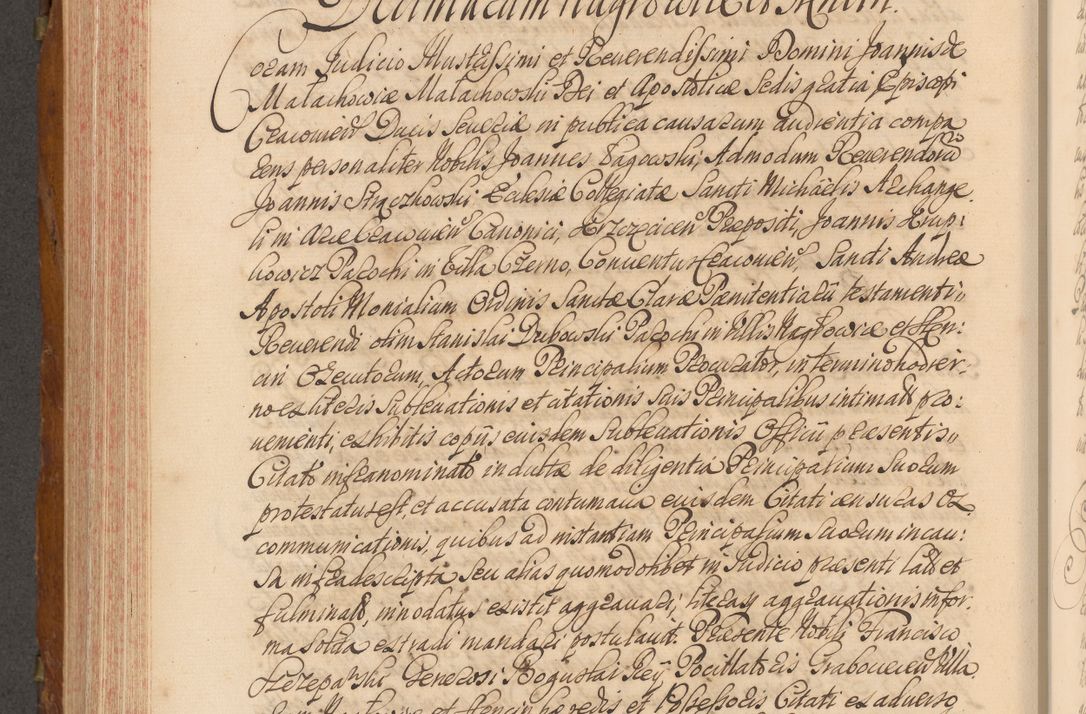 Decimarum Nagłowice et Anim.
Coram Judicio Illustrissimi et Reverendissimi Domini Joannis de
Małachowice Małachowski Dei et Apostolicæ Sedis gratia Episcopi
Cracovien Ducis Severiæ in publica causarum audientia compa
rens personaliter Nobilis Joannes Pagowski, Admodum Reverendorū
Joannis Strączkowski, Eclesiæ Collegiatæ Sancti Michaelis Archange
li in Arce Cracovien Canonici, Præpositi, Joannis Krup:
kowicz Parochi in Villa Czerno, Conventus Cracovien, Sancti Andreæ
Apostoli Monialium Ordinis Sanctæ Claræ Pænitentiarii testamenti
Reverendi olim Stanislai Dubowski Parochi in Villis Nagłowice et
Executorum, Actorum Principalium Procurator, in termino hodier:
no ex literis Sublevationis et citationis Suis Principalibus intimatis pro:
venienti, exhibitis copijs eiusdem Sublevationis Officij præsentis
Citato infranominato inductæ de diligentia Principalium Suorum
protestatus est, et accusata contumacia eiusdem Citati censuras ex
communicationis, quibus ad instantiam Principalium Suorum in cau:
sa infradescripta seu alias quomodolibet in Judicio præsenti latis et
fulminatis, innodatus existit aggravari, literasq aggravationis in for:
ma solita extradi mandari postulavit. Præsente Nobili Francisco
Generosi Boguslai Rey Pocillatoris Grabovien Villæ
hæredis et Possessoris Citati ex adverso